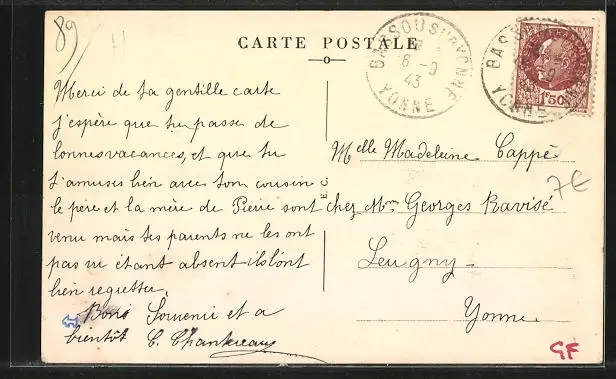 89
CARTE POSTALE
BASSOU SUR YONNE
8 - 9
43
YONNE
BAS
YONNE
1F50
Merci de ta gentille carte
j'espère que tu passes de
bonnes vacances, et que tu
t'amuses bien avec ton cousin
le père et la mère de Pierre sont
venu mais tes parents ne les ont
pas vu étant absent ils l'ont
bien regretter.
Bons Souvenir et a
bientôt C.
E. C.
Melle Madeleine Cappé
chez Mme Georges Ravisé
Leugny
Yonne
7€
GF